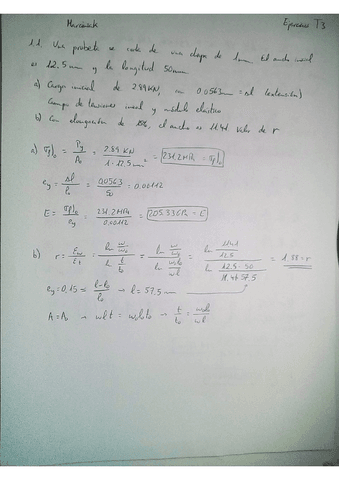 Marciniak Ejercicios T3
1.1. Una probeta se corta de una chapa de 1mm. El ancho inicial
es 12,5mm y la longitud 50mm
a) Carga inicial de 2.89KN, con 0.0563mm = Δl (extensión)
Campo de tensiones inicial y módulo elástico
b) Con elongación de 15%, el ancho es 11.41 Valor de r
a) (σf)₀ = Py/A₀ = 2.89 KN/1·12.5mm² = 231.2 MPa = (σf)₀
ey = Δl/l₀ = 0.0563/50 = 0.00112
E = (σf)₀/ey = 231.2 MPa/0.00112 = 205.3 GPa = E
b) r = Ew/Et = ln w/w₀ / ln t/t₀ = ln w/w₀ / ln w₀l₀/wl = ln 11.41/12.5 / ln 12.5·50/11.41·57.5 = 1.88 = r
ey = 0,15 = l-l₀/l₀ → l = 57.5 mm
A = A₀ → wlt = w₀l₀t₀ → t/t₀ = w₀l₀/wl